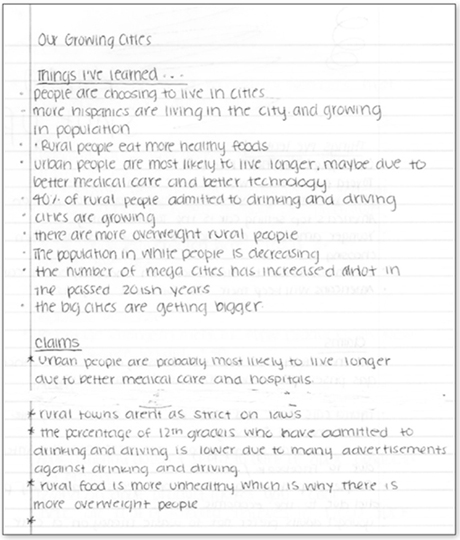 Our Growing Cities
Things I've learned...
- people are choosing to live in cities
- more hispanics are living in the city and growing
in population
• Rural people eat more healthy foods
• urban people are most likely to live longer, maybe due to
better medical care and better technology
• 40% of rural people admitted to drinking and driving
• cities are growing
• there are more overweight rural people
• The population in white people is decreasing
• the number of mega cities has increased in
the passed 20ish years
• the big cities are getting bigger.
Claims
* urban people are probably most likely to live longer
due to better medical care and hospitals
* rural towns aren't as strict on laws
* the percentage of 12th graders who have admitted to
drinking and driving is lower due to many advertisements
against drinking and driving
* rural food is more unhealthy which is why there is
more overweight people
*